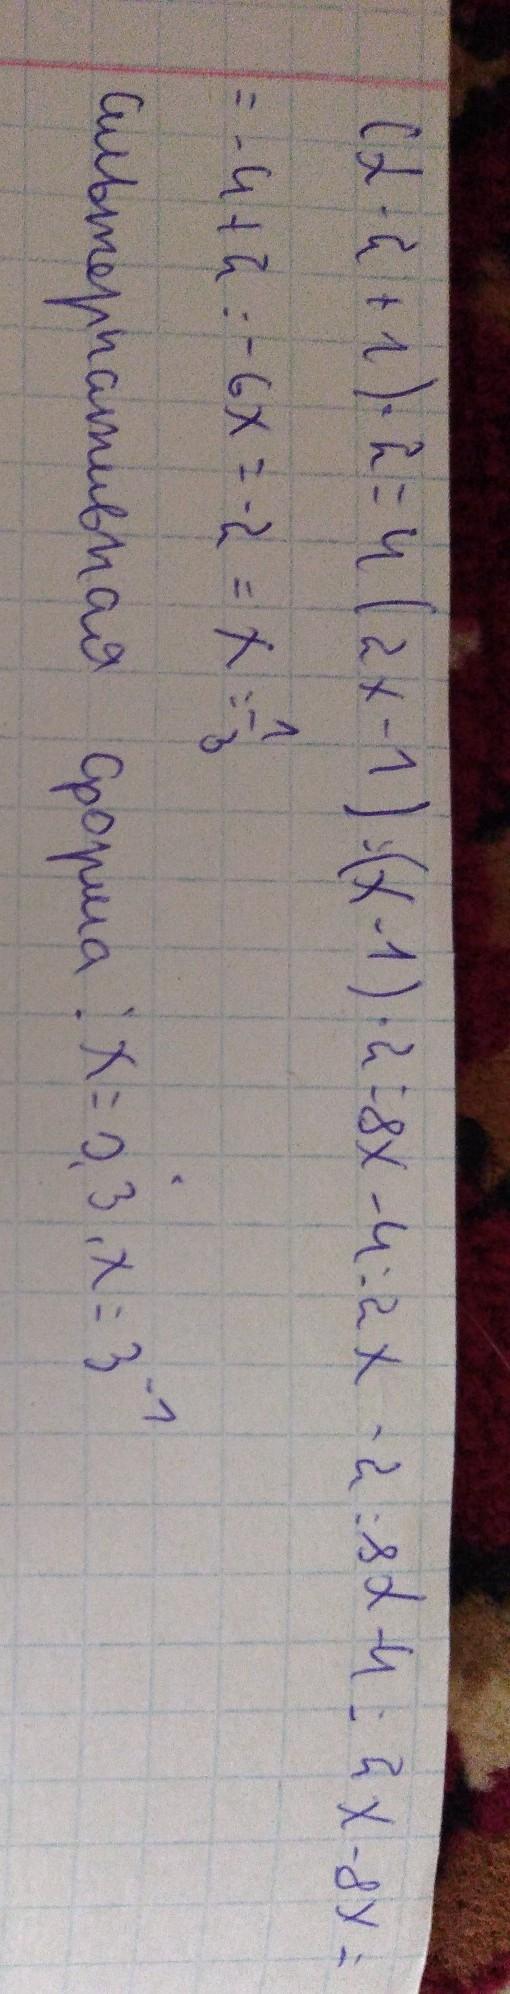 (x - 2 + 1) · 2 = 4 (2x - 1) = (x - 1) · 2 = 8x - 4 = 2x - 2 = 8x - 4 = 2x - 8x =
= -4 + 2 = -6x = -2 = x = 1/3
альтернативная форма: x = 0,3, x = 3⁻¹